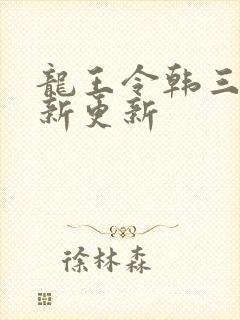 龍王令韩三
新更新
徐林森